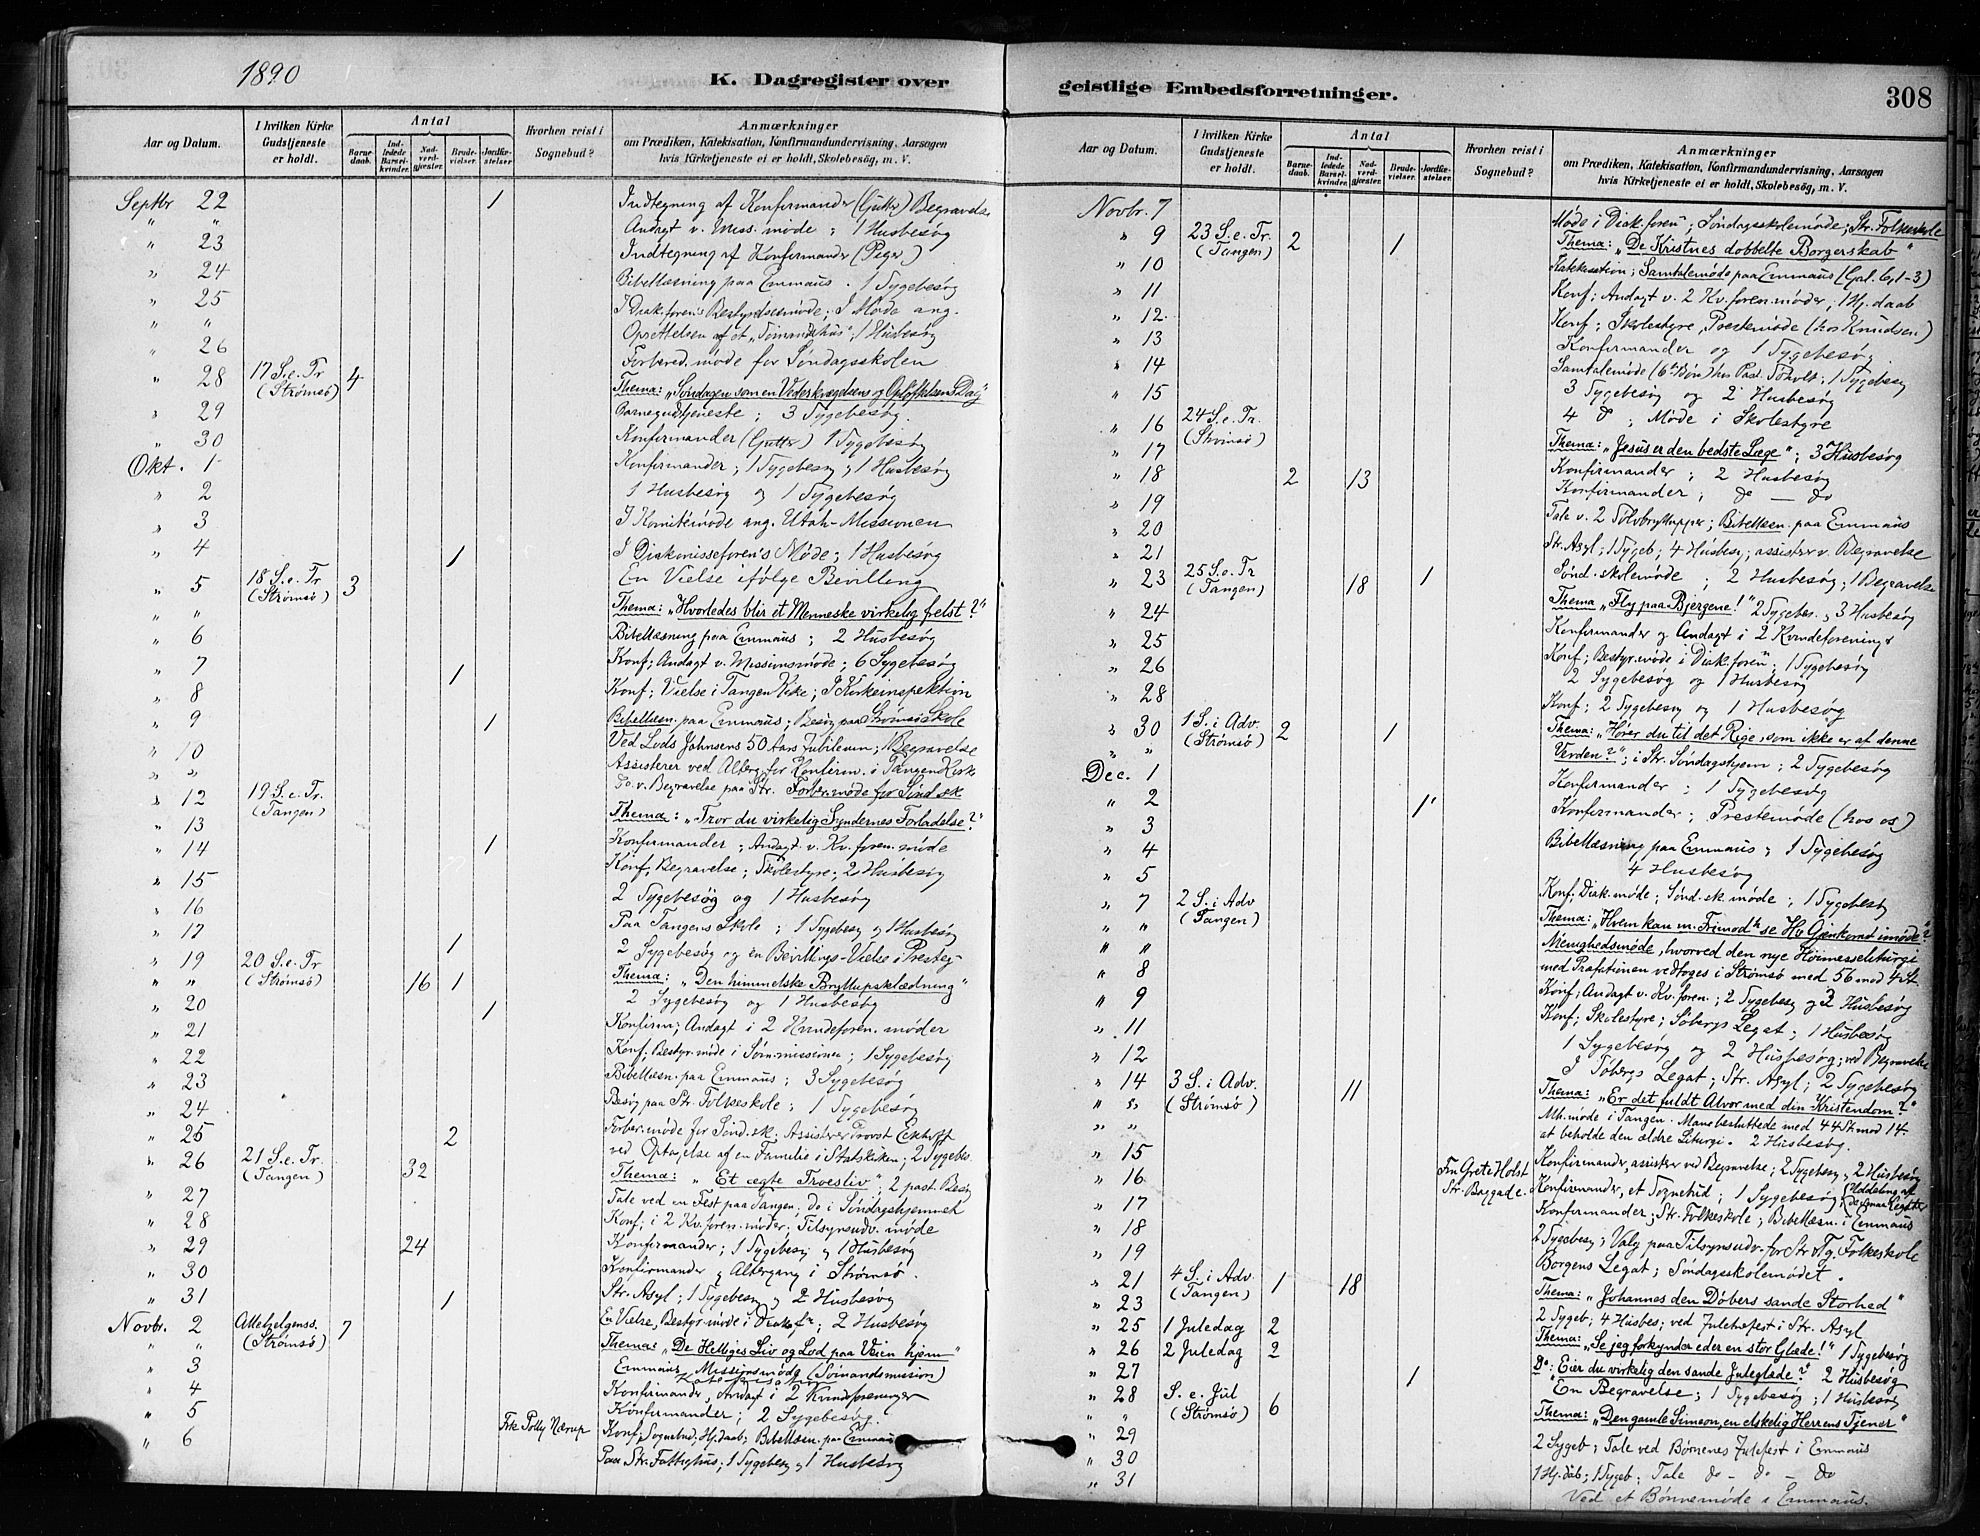 1890
K. Dagregister over
Aar og Datum.
I hvilken Kirke Gudstjeneste er holdt.
Antal
Barnedaab.
Indledede Barselkvinder.
Nadverdgjæster.
Brudevielser.
Jordfæstelser.
Hvorhen reist i Sognebud?
Anmærkninger
om Prædiken, Katekisation, Konfirmandundervisning, Aarsagen
hvis Kirketjeneste ei er holdt, Skolebesøg, m. V.
Septbr 22 1 Indtegning af Konfirmander (Gutter) Begravelse
" " Andagt v. Miss. møde ; 1 Husbesøg
" 23 Indtegning af Konfirmander (Piger)
" 24 Bibellæsning paa Emmaus . 1 Sygebesøg
" 25 I Diak.foren's Bestyrelsesmøde; I Møde ang.
" " Oprettelsen af et "Sømandshus"; 1 Husbesøg
" 26 Forbered. møde for Søndagsskolen
" 28 17 S. e. Tr (Strømsø) 4 Thema: "Søndagen som en Vederkvægelsens og Opløftelsens Dag"
" 29 Barnegudstjeneste ; 3 Sygebesøg
" 30 Konfirmander (Gutter) 1 Sygebesøg
Okt. 1 Konfirmander ; 1 Sygebesøg og 1 Husbesøg
" 2 1 Husbesøg og 1 Sygebesøg
" 3 I Komitémøde ang. Utah-Missionen
" 4 1 I Diakonisseforen's Møde ; 1 Husbesøg
" 5 18 S. e. Tr (Strømsø) 3 En Vielse ifølge Bevilling
" " Thema: "Hvorledes blir et Menneske virkelig frelst?"
" 6 Bibellæsning paa Emmaus ; 2 Husbesøg
" 7 1 Konf; Andagt v. Missionsmøde; 6 Sygebesøg
" 8 Konf; Vielse i Tangen Kirke; I Kirkeinspektion
" 9 1 Bibellæsn. paa Emmaus; Besøg paa Strømsø Skole
" 10 Ved Lods Johnsens 50 Aars Jubilæum; 1 Begravelse
" " Assisterer ved Alterg. for Konfirm. i Tangen Kirke
" 12 19 S. e. Tr. (Tangen) Do v. Begravelse paa Str. Forber. møde for Sønd. sk
" 13 Thema: "Tror du virkelig Syndernes Forladelse?"
" 14 1 Konfirmander ; Andagt v. Kv. foren. møde
" 15 Konf; Begravelse; Skolestyre; 2 Husbesøg
" 16 2 Sygebesøg og 1 Husbesøg
" 17 Paa Tangens Skole ; 1 Sygebesøg og 1 Husbesøg
" 19 20 S. e. Tr (Strømsø) 1 2 Sygebesøg og en Bevillings-Vielse i Presteg.
" " 16 1 Thema: "Den himmelske Bryllupsklædning"
" 20 1 2 Sygebesøg og 1 Husbesøg
" 21 Konfirm; Andagt i 2 Kvindeforen. møder
" 22 Konf; Bestyr. møde i Søm.missionen ; 1 Sygebesøg
" 23 Bibellæsn. paa Emmaus ; 3 Sygebesøg
" 24 Besøg paa Str. Folkeskole ; 1 Sygebesøg
" 25 2 Forber. møde for Sønd. sk; Assisterer Provst Eckhoff
" 26 21 S. e. Tr. (Tangen) 32 ved Optagelse af en Familie i Statskirken; 2 Sygebes.
" 27 Thema: "Et ægte Troesliv" ; 2 past. Besøg
" 28 Tale ved en Fest paa Tangen; do i Søndagshjemmet
" 29 24 Konf; i 2 Kv. foren. møder. Tilsynsudv. møde
" 30 Konfirmander ; 1 Sygebesøg og 1 Husbesøg
" 31 Konfirmander og Altergang i Strømsø.
1 Str. Asyl; 1 Sygebesøg og 2 Husbesøg
Novbr. 2 Allehelgenss. (Strømsø) 7 En Vielse, Bestyr. møde i Diak. fr ; 2 Husbesøg
" " Thema: "De Helliges Liv og Lod paa Veien hjem"
" 3 Emmaus, Missionsmøde (Sømandsmission)
" 4 Konfirmander, Andagt i 2 Kvindeforeninger
" 5 Konfirmander; 2 Sygebesøg.
" 6 Frk Polly Nærup Konf; Sognebud; Hj.daab; Bibellæsn. paa Emmaus
Paa Str. Fattighus; 1 Sygebesøg og 1 Husbesøg
geistlige Embedsforretninger.
308
Aar og Datum.
I hvilken Kirke Gudstjeneste er holdt.
Antal
Barnedaab.
Indledede Barselkvinder.
Nadverdgjæster.
Brudevielser.
Jordfæstelser.
Hvorhen reist i Sognebud?
Anmærkninger
om Prædiken, Katekisation, Konfirmandundervisning, Aarsagen
hvis Kirketjeneste ei er holdt, Skolebesøg, m. V.
Novbr. 7 Møde i Diak.foren; Søndagsskolemøde; Str. Folkeskole
" 9 23 S. e. Tr. (Tangen) 2 1 Thema: "De Kristnes dobbelte Borgerskab"
" 10 Katekisation; Samtalemøde paa Emmaus (Gal. 6, 1-3)
" 11 Konf; Andagt v. 2 Kv. foren. møder; 1 Hj. daab
" 12 Konf; Skolestyre, Prestemøde (hos Knudsen)
" 13 Konfirmander og 1 Sygebesøg
" 14 Samtalemøde (6te Bøn) hos Past. Toholt; 1 Sygebesøg
" 15 3 Sygebesøg og 2 Husbesøg
" 16 24 S. e. Tr. (Strømsø) 4 do ; Møde i Skolestyre
" 17 Thema: "Jesus er den bedste Læge" ; 3 Husbesøg
" 18 2 13 Konfirmander ; 2 Husbesøg
" 19 Konfirmander ; do — do
" 20 Tale v. 2 Sølvbrylluper; Bibellæsn. paa Emmaus
" 21 Str. Asyl; 1 Sygeb; 4 Husbes; assisterer v. Begravelse
" 23 25 S. e. Tr (Tangen) 18 1 Sønd. skolemøde ; 2 Husbesøg; 1 Begravelse
" 24 Thema "Fly paa Bjergene!" 2 Sygebes. og 3 Husbesøg
" 25 Konfirmander og Andagt i 2 Kvindeforeninger
" 26 Konf; Bestyr. møde i Diak. foren; 1 Sygebesøg
" 28 2 Sygebesøg og 1 Husbesøg
Konf; 2 Sygebesøg og 1 Husbesøg
" 30 1 S. i Adv. (Strømsø) 2 1 Thema: "Hører du til det Rige, som ikke er af denne
" " Verden?" ; i Str. Søndagshjem ; 2 Sygebesøg
Dec. 1 Konfirmander ; 1 Sygebesøg
" 2 1 Konfirmander ; Prestemøde (hos os)
" 3 Bibellæsning paa Emmaus ; 1 Sygebesøg
" 4 4 Husbesøg
" 5 Konf; Diak. møde ; Sønd. sk. møde ; 1 Sygebesøg
" 7 2 S. i Adv (Tangen) Thema: "Hvem kan m. Frimodh se Hs Gjenkomst imøde?"
" " Menighedsmøde, hvorved den nye Høimesseliturgi
" " med Præfationen vedtoges i Strømsø med 56 mod 4 St.
" 8 Konf; Andagt v. Kv. foren. ; 2 Sygebesøg og 2 Husbesøg
" 9 Konf; Skolestyre; Søbergs Legat ; 1 Husbesøg
" 11 1 Sygebesøg og 2 Husbesøg; ved Begravelse
" 12 I Søbergs Legat ; Str. Asyl ; 2 Sygebesøg
" 14 3 S. i Adv. (Strømsø) 11 Thema: "Er det fuldt Alvor med din Kristendom?"
" " Mh. møde i Tangen. Man besluttede med 44 St. mod 14
" " at beholde den ældre Liturgi. 2 Husbesøg.
" 15 Konfirmander, assisterer ved Begravelse; 2 Sygebesøg, 2 Husbesøg
" 16 Fru Grete Holst Str. Baggade. Konfirmander, et Sognebud ; 1 Sygebesøg (Uddeling af Legater
" 17 Konfirmander; Str. Folkeskole ; Bibellæsn. i Emmaus
" 18 2 Sygebesøg; Valg paa Tilsynsudv. for Str & Tg. Folkeskole
" 19 Borgens Legat ; Søndagsskolemødet .
" 21 4 S. i Adv (Tangen) 1 18 Thema: "Johannes den Døbers sande Storhed"
" 23 2 Sygeb; 4 Husbes; ved Juletræfest i Str. Asyl
" 25 1 Juledag 2 Thema: "Se jeg forkynder eder en stor Glæde!" 1 Sygebesøg
" 26 2 Juledag 2 Do: Eier du virkelig den sande Juleglæde?" 2 Husbesøg
" 27 1 En Begravelse ; 1 Sygebesøg ; 1 Husbesøg
" 28 S. e. Jul (Strømsø) 6 Thema: "Den gamle Simeon, en elskelig Herrens Tjener"
" "
" 29 2 Sygeb; Tale ved Børnenes Julefest i Emmaus
" 30 1 Hj. dåb ; 1 Sygeb; Tale do — do — do
" 31 Ved et Bønnemøde i Emmaus.